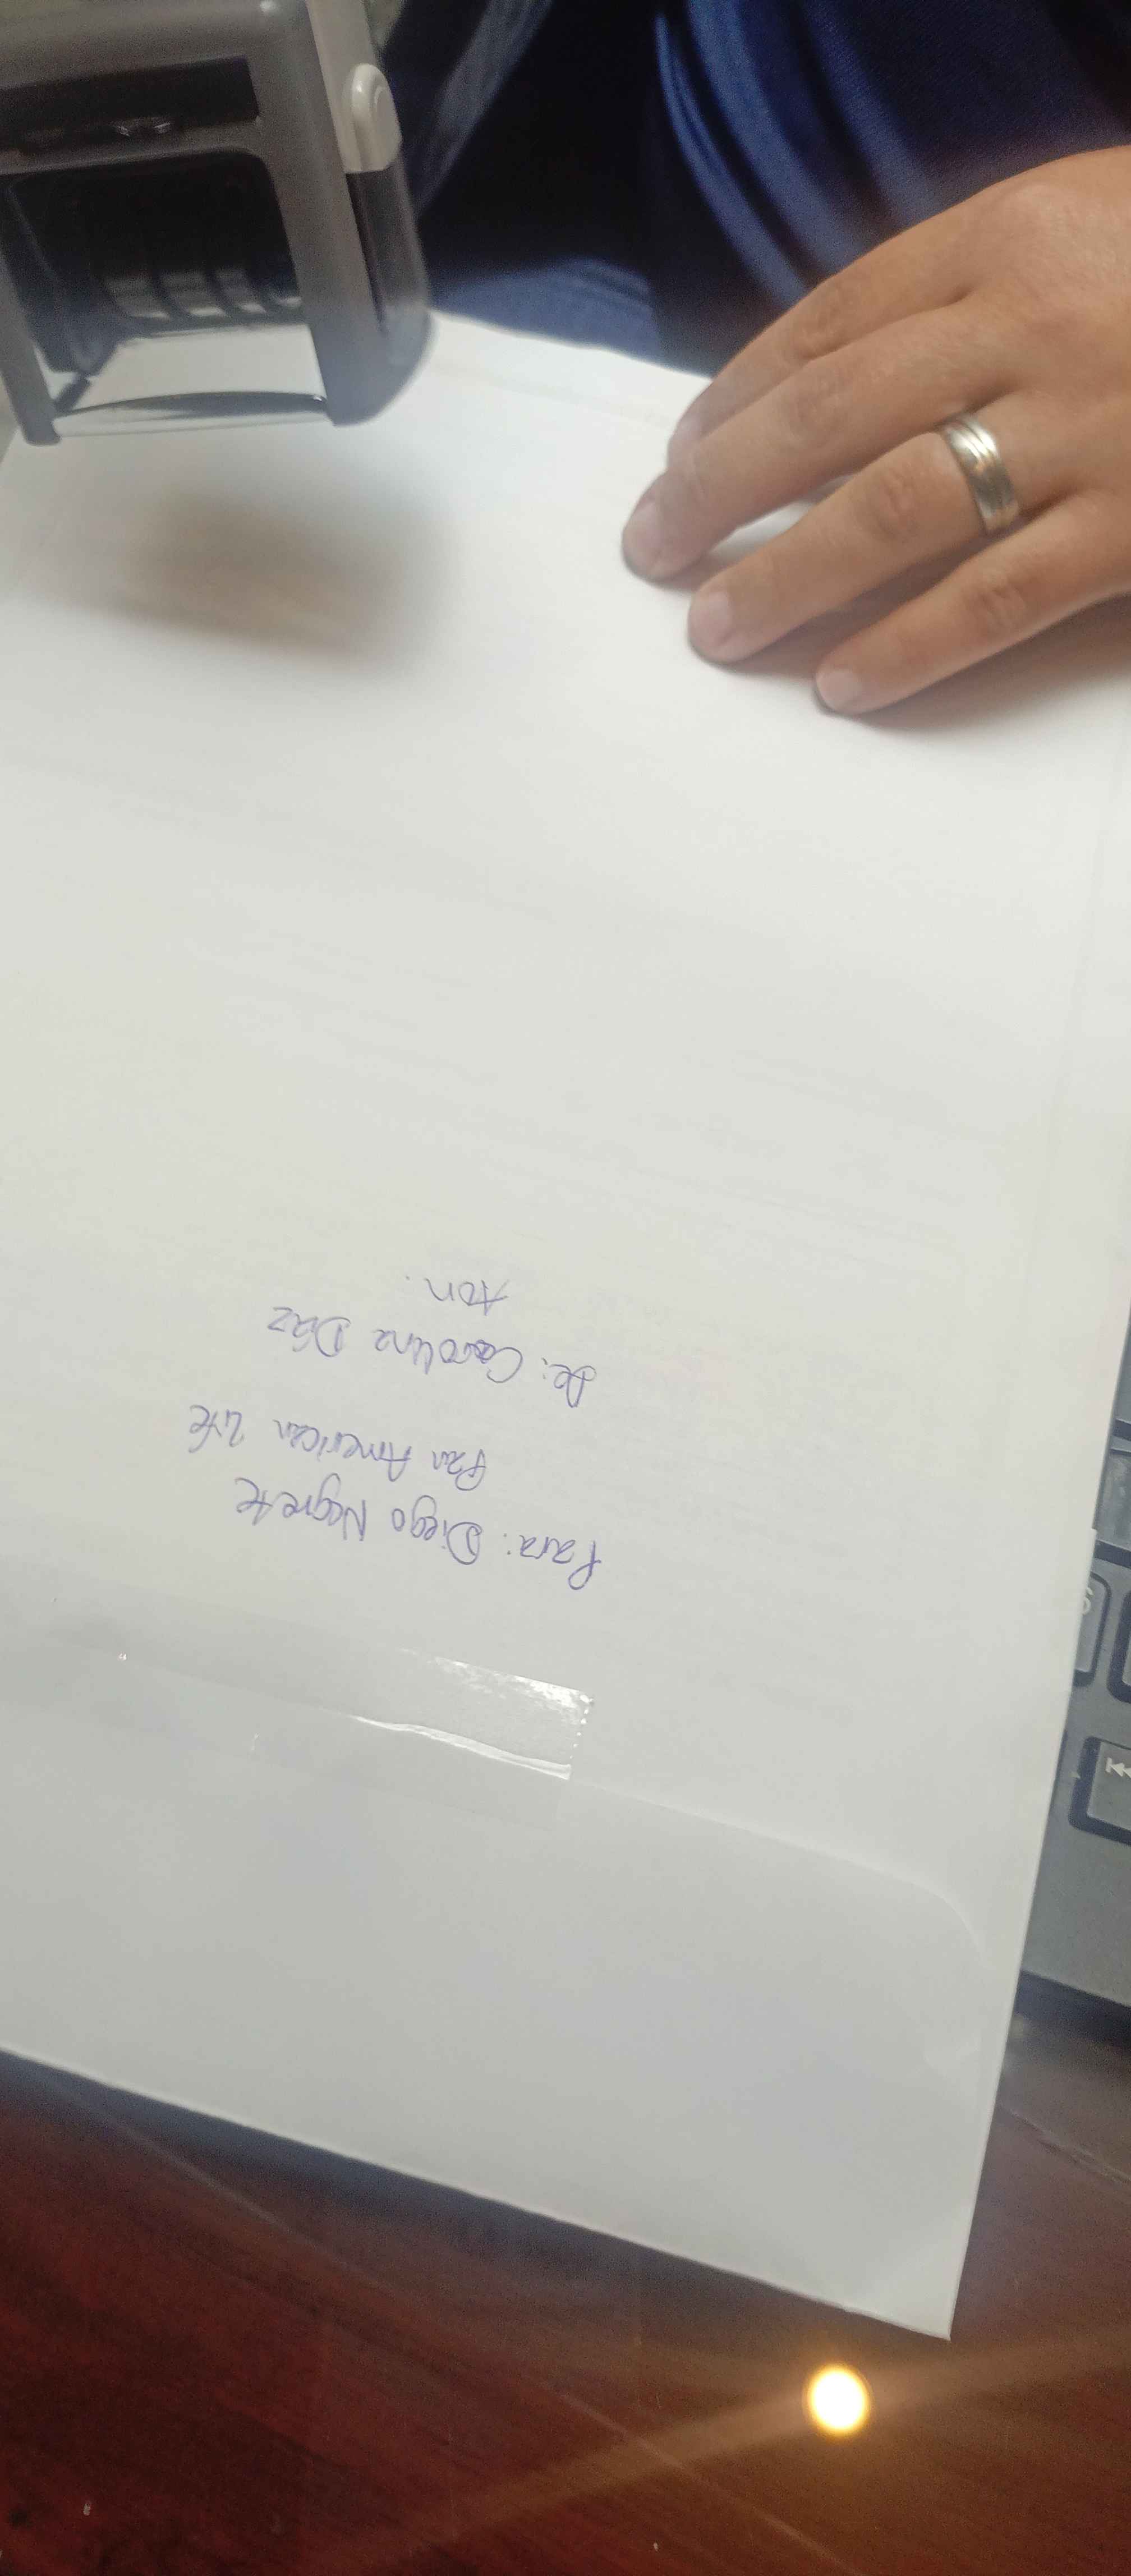 Para: Diego Negrete
Pan American Life
De: Carolina Díaz
Aon.